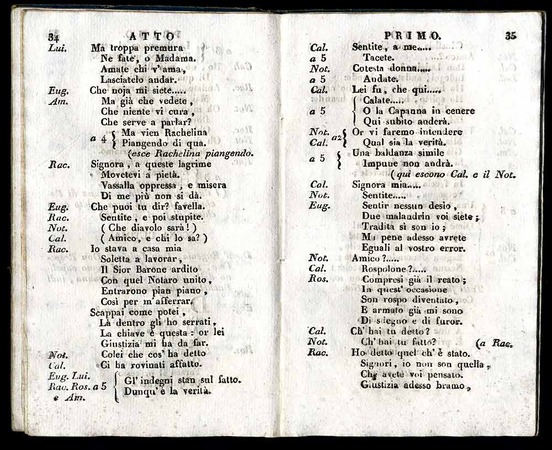 34 ATTO
Lui. Ma troppa premura
Ne fate, o Madama.
Amate chi v'ama,
Lasciatelo andar.
Eug. Che noja mi siete.....
Am. Ma già che vedete,
Che niente vi cura,
Che serve a parlar?
a 4 { Ma vien Rachelina
Piangendo di qua.
(esce Rachelina piangendo.
Rac. Signora, a queste lagrime
Movetevi a pietà.
Vassalla oppressa, e misera
Di me più non si dà.
Eug. Che puoi tu dir? favella.
Rac. Sentite, e poi stupite.
Not. ( Che diavolo sarà! )
Cal. ( Amico, e chi lo sa? )
Rac. Io stava a casa mia
Soletta a lavorar,
Il Sior Barone ardito
Con quel Notaro unito,
Entrarono pian piano,
Così per m'afferrar.
Scappai come potei,
Là dentro gli ho serrati,
La chiave è questa: or lei
Giustizia mi ha da far.
Not. Colei che cos' ha detto
Cal. Ci ha rovinati affatto.
Eug. Lui.
Rac. Ros. a 5
e Am.
{ Gl' indegni stan sul fatto.
Dunqu' è la verità.
PRIMO. 35
Cal. Sentite, a me.....
a 5 Tacete.
Not. Cotesta donna.....
a 5 Andate.
Cal. Lei fu, che qui.....
a 5 { Calate.....
O la Capanna in cenere
Qui subito anderà.
Not. Cal. a2 { Or vi faremo intendere
Qual sia la verità.
a 5 { Una baldanza simile
Impune non andrà.
(qui escono Cal. e il Not.
Cal. Signora mia.....
Not. Sentite.....
Eug. Sentir nessun desio,
Due malandrin voi siete;
Tradita sì son io;
Ma pene adesso avrete
Eguali al vostro error.
Not. Amico?.....
Cal. Rospolone?.....
Ros. Compresi già il reato;
In quest' occasione
Son rospo diventato,
E armato già mi sono
Di sdegno e di furor.
Cal. Ch' hai tu detto?
Not. Ch' hai tu fatto? (a Rac.
Rac. Ho detto quel ch' è stato.
Signori, io non son quella,
Che avete voi pensato.
Giustizia adesso bramo,